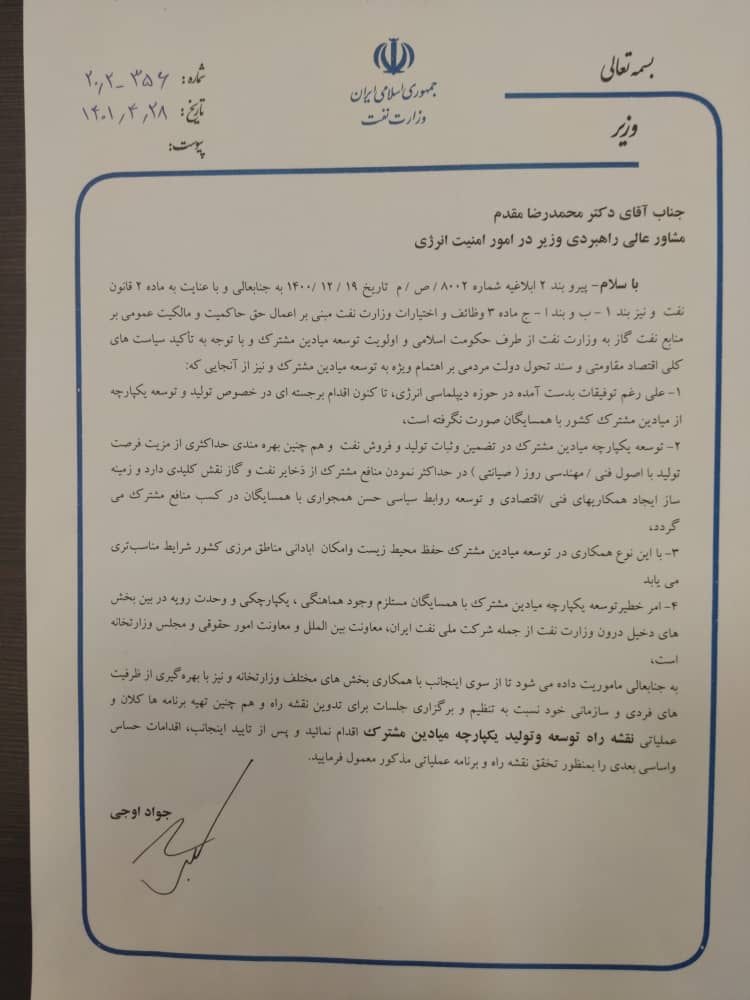 بسمه تعالی
جمهوری اسلامی ایران
وزارت نفت
وزیر
شماره: ۲۰٫۲-۳۵۶
تاریخ: ۱۴۰۱٫۴٫۲۸
پیوست:
جناب آقای دکتر محمدرضا مقدم
مشاور عالی راهبردی وزیر در امور امنیت انرژی
با سلام- پیرو بند ۲ ابلاغیه شماره ۸۰۰۲ / ص / م تاریخ ۱۹ / ۱۲ / ۱۴۰۰ به جنابعالی و با عنایت به ماده ۲ قانون
نفت و نیز بند ۱ - ب و بند ا - ج ماده ۳ وظائف و اختیارات وزارت نفت مبنی بر اعمال حق حاکمیت و مالکیت عمومی بر
منابع نفت گاز به وزارت نفت از طرف حکومت اسلامی و اولویت توسعه میادین مشترک و با توجه به تأکید سیاست های
کلی اقتصاد مقاومتی و سند تحول دولت مردمی بر اهتمام ویژه به توسعه میادین مشترک و نیز از آنجایی که:
۱- علی رغم توفیقات بدست آمده در حوزه دیپلماسی انرژی، تا کنون اقدام برجسته ای در خصوص تولید و توسعه یکپارچه
از میادین مشترک کشور با همسایگان صورت نگرفته است،
۲- توسعه یکپارچه میادین مشترک در تضمین وثبات تولید و فروش نفت و هم چنین بهره مندی حداکثری از مزیت فرصت
تولید با اصول فنی / مهندسی روز ( صیانتی ) در حداکثر نمودن منافع مشترک از ذخایر نفت و گاز نقش کلیدی دارد و زمینه
ساز ایجاد همکاریهای فنی /اقتصادی و توسعه روابط سیاسی حسن همجواری با همسایگان در کسب منافع مشترک می
گردد،
۳- با این نوع همکاری در توسعه میادین مشترک حفظ محیط زیست وامکان ابادانی مناطق مرزی کشور شرایط مناسب‌تری
می یابد
۴- امر خطیرتوسعه یکپارچه میادین مشترک با همسایگان مستلزم وجود هماهنگی ، یکپارچکی و وحدت رویه در بین بخش
های دخیل درون وزارت نفت از جمله شرکت ملی نفت ایران، معاونت بین الملل و معاونت امور حقوقی و مجلس وزارتخانه
است،
به جنابعالی ماموریت داده می شود تا از سوی اینجانب با همکاری بخش های مختلف وزارتخانه و نیز با بهره‌گیری از ظرفیت
های فردی و سازمانی خود نسبت به تنظیم و برگزاری جلسات برای تدوین نقشه راه و هم چنین تهیه برنامه ها کلان و
عملیاتی نقشه راه توسعه وتولید یکپارچه میادین مشترک اقدام نمائید و پس از تایید اینجانب، اقدامات حساس
واساسی بعدی را بمنظور تحقق نقشه راه و برنامه عملیاتی مذکور معمول فرمایید.
جواد اوجی